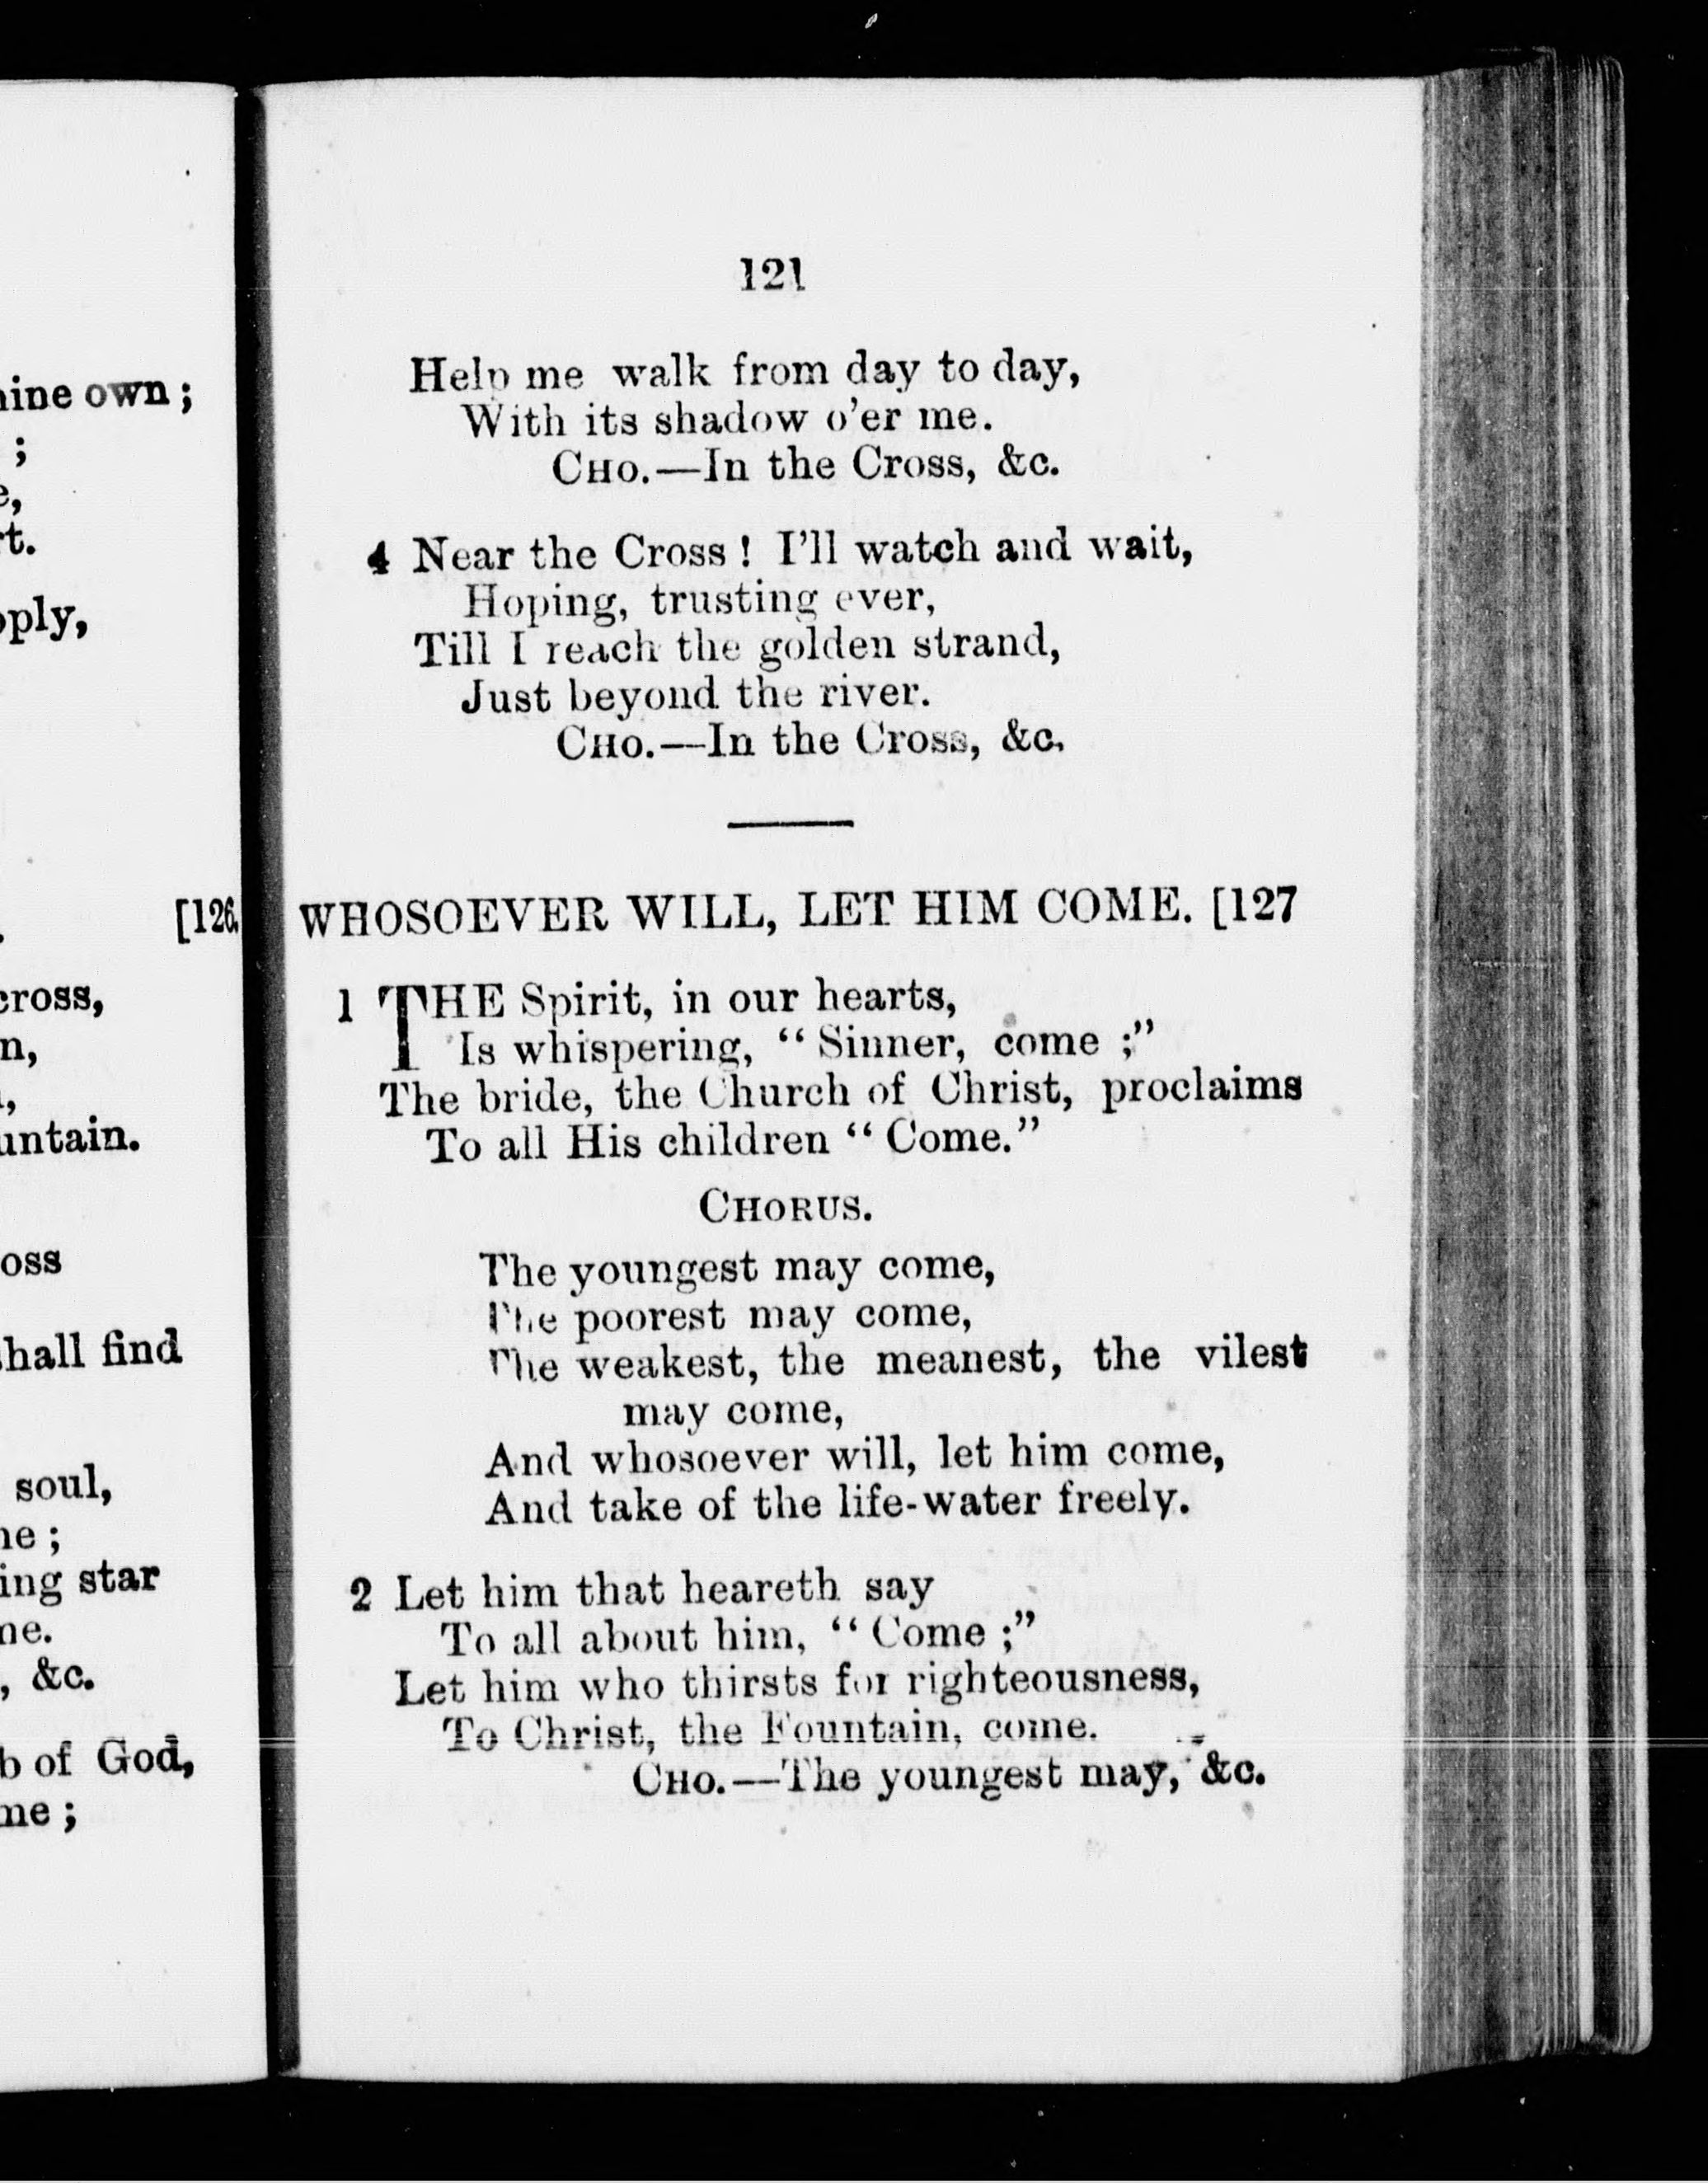 nine own ;
;
e,
rt.
pply,
[126.
cross,
n,
untain.
oss
shall find
soul,
ne ;
ing star
ne.
, &c.
b of God,
me ;
121
Help me walk from day to day,
With its shadow o'er me.
CHO.—In the Cross, &c.
4 Near the Cross ! I'll watch and wait,
Hoping, trusting ever,
Till I reach the golden strand,
Just beyond the river.
CHO.—In the Cross, &c.
WHOSOEVER WILL, LET HIM COME. [127
1 THE Spirit, in our hearts,
Is whispering, “ Sinner, come ;”
The bride, the Church of Christ, proclaims
To all His children “ Come.”
CHORUS.
The youngest may come,
The poorest may come,
The weakest, the meanest, the vilest
may come,
And whosoever will, let him come,
And take of the life-water freely.
2 Let him that heareth say
To all about him, “ Come ;”
Let him who thirsts for righteousness,
To Christ, the Fountain, come.
CHO.—The youngest may, &c.